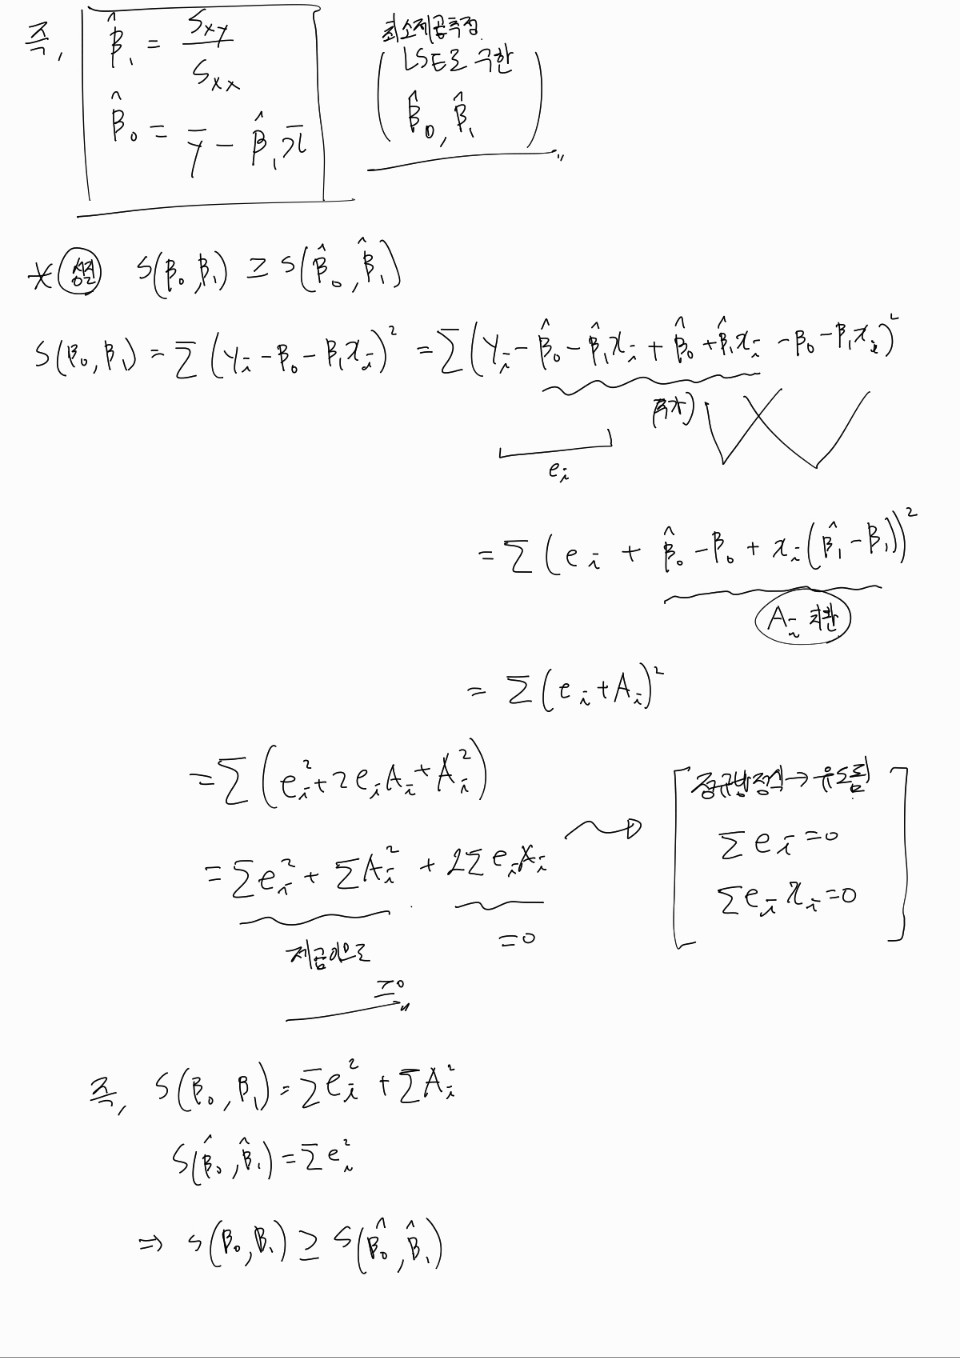 즉, β̂₁ = Sxy / Sxx
β̂₀ = ȳ - β̂₁x̄
최소제곱추정
(LSE로 구한
β̂₀, β̂₁)
* 성질 S(β₀, β₁) ≥ S(β̂₀, β̂₁)
S(β₀, β₁) = Σ(yᵢ - β₀ - β₁xᵢ)² = Σ(yᵢ - β̂₀ - β̂₁xᵢ + β̂₀ + β̂₁xᵢ - β₀ - β₁xᵢ)²
eᵢ
= Σ(eᵢ + β̂₀ - β₀ + xᵢ(β̂₁ - β₁))²
Aᵢ 치환
= Σ(eᵢ + Aᵢ)²
= Σ(eᵢ² + 2eᵢAᵢ + Aᵢ²)
= Σeᵢ² + ΣAᵢ² + 2ΣeᵢAᵢ
제곱이므로
≥0
=0
[정규방정식 → 유도됨
Σeᵢ = 0
Σeᵢxᵢ = 0]
즉, S(β₀, β₁) = Σeᵢ² + ΣAᵢ²
S(β̂₀, β̂₁) = Σeᵢ²
⇒ S(β₀, β₁) ≥ S(β̂₀, β̂₁)